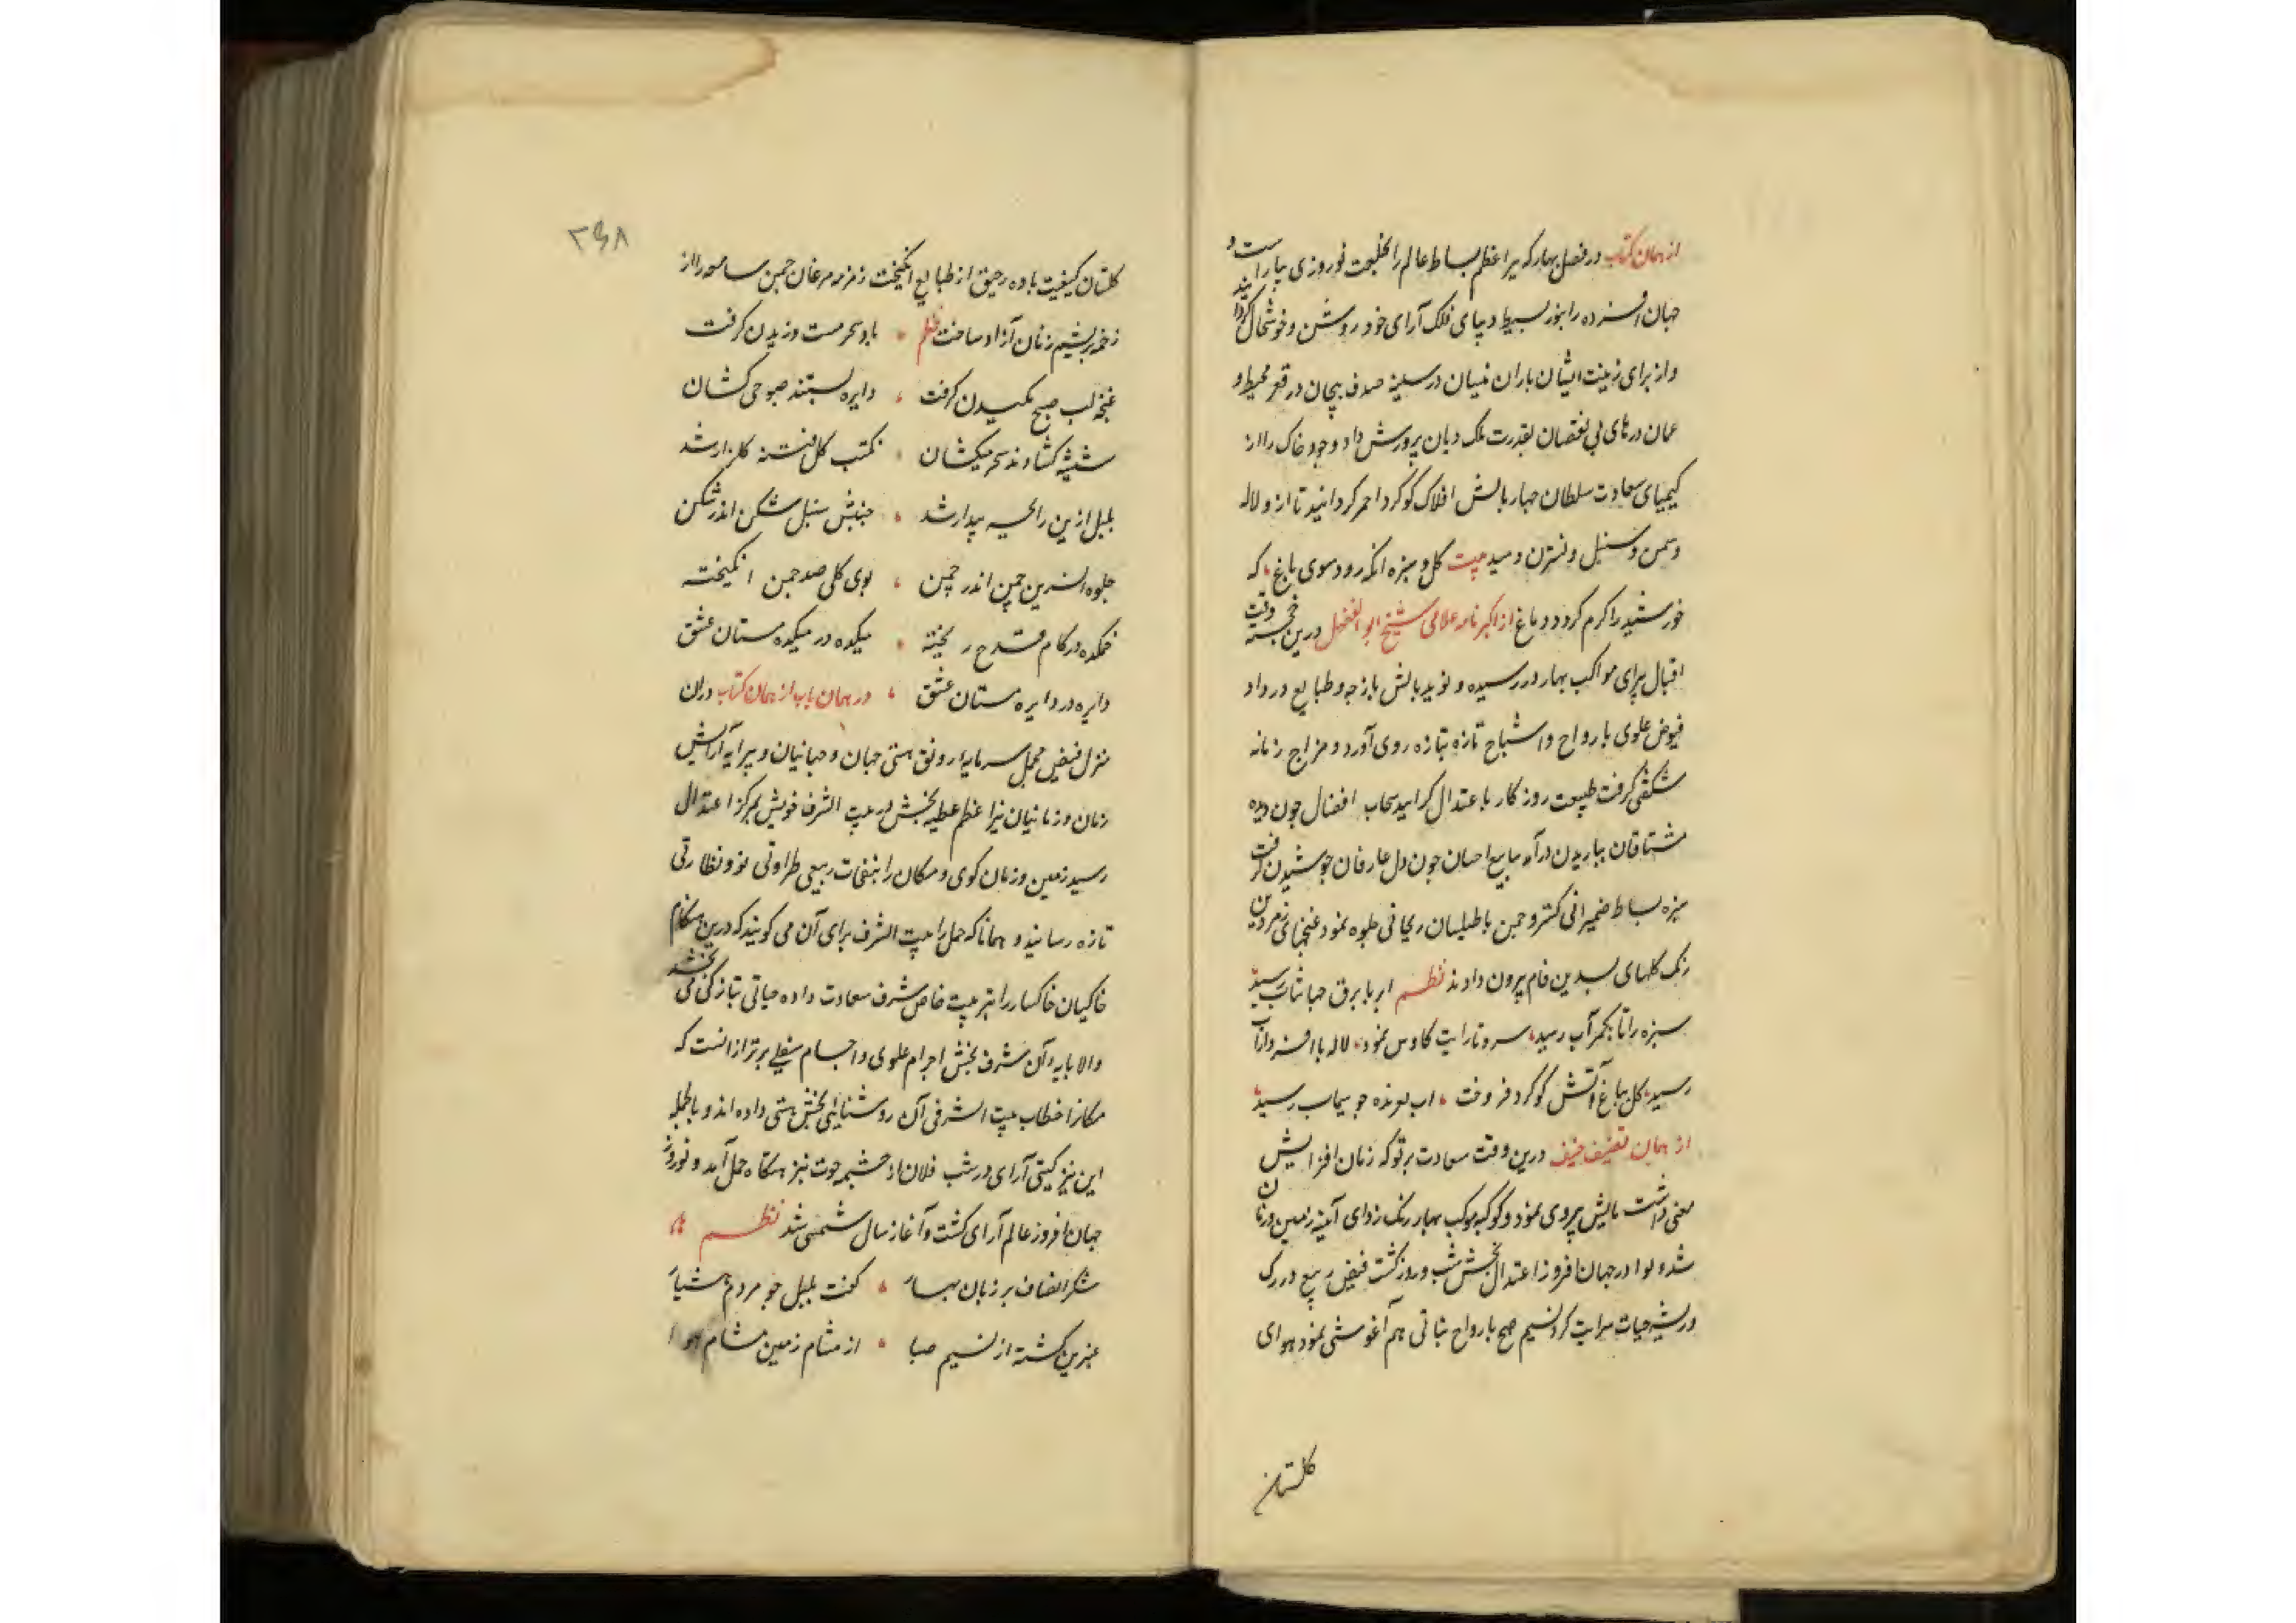 از همان کتاب در فصل بهار که نیر اعظم بساط عالم را بخلعت نوروزی بیاراست و
جهان افسرده را بنور بسیط دیبای فلک آرای خود روشن و خوشحال گرداند
و از برای زینت ایشان باران نیسان در سینه صدف بیجان در قعر محیط و
عمان درهای بی نقصان بقدرت ملک دیان پرورش داد وجود خاک را از
کیمیای سعادت سلطان چهار بالش افلاک گوگرد احمر گردانید تا ازو لاله
و سمن و سنبل و نسترن دمید بیت گل و سبزه انکه رود سوی باغ که
خورشید را گرم گردد دماغ از اکبرنامه علامی شیخ ابو الفضل درین خجسته وقت
اقبال پیرای مواکب بهار در رسیده و نوید بالش بازجه و طبایع در داد
فیوض علوی بارواح و اشباح تازه بتازه روی آورد و مزاج زمانه
شکفتگی گرفت طبیعت روزگار باعتدال گرایید سحاب افضال چون دیده
مشتاقان بباریدن درآمد ینابیع احسان چون دل عارفان جوشیدن گرفت
سبزه بساط ضمیرانی گسترد چمن با طیلسان ریحانی جلوه نمود غنچهای زمردین
رنک گلهای بسدین فام بیرون دادند نظم ابر با برق جهانتاب رسید
سبزه را تا بکمر آب رسید سرو تا رایت کاوس نمود لاله با افسر داراب
رسید گل بباغ آتش گوگرد فروخت اب لرزنده چو سیماب رسید
از همان تصنیف حنیف درین وقت سعادت پرتو که زمان افزایش
معنی داشت بالش پیروی نمود و کوکبه موکب بهار رنک زدای آئینه زمین و زمان
شد و نوا در جهان افروز اعتدال بخش شب و روز گشت فیض ربیع در رک
و ریشه حیات سرایت کرد نسیم صبح بارواح نباتی هم آغوشی نمود هوای
گلستان
۲۶۸
گلستان کیفیت باده رحیق از طبایع انگیخت زمزمه مرغان چمن سامعه را از
زخمه بریشم زنان آزاد ساخت نظم باد سحر مست وزیدن گرفت
غنچه لب صبح مکیدن گرفت دایره بستند صبوحی کشان
شیشه گشادند سحر میکشان مکتب گل فتنه گلزار شد
بلبل ازین رایحه بیدار شد جنبش سنبل شکن اندر شکن
جلوه نسرین چمن اندر چمن بوی گلی صد چمن انگیخته
خمکده در کام قدح ریخته میکده در میکده مستان عشق
دایره در دایره مستان عشق در همان باب از همان کتاب دران
منزل فیض محمل سرمایه رونق هستی جهان و جهانیان و پیرایه آرایش
زمان و زمانیان نیر اعظم عطیه بخش از بیت الشرف خویش بمرکز اعتدال
رسید زمین و زمان کوی و مکان را بنفحات ربیعی طراوتی نو و نظارتی
تازه رسانید و همانا که حمل را بیت الشرف برای آن می گویند که درین هنکام
خاکیان خاکسار را بتربیت خاص شرف سعادت داده حیاتی بتازگی می بخشد
والا پایه آن شرف بخش اجرام علوی و اجسام سفلی برتر ازانست که
مکانرا خطاب بیت الشرفی آن روشنائی بخش هستی داده اند و بالجمله
این نیر گیتی آرای در شب فلان از چشمه حوت بنزهتکاه حمل آمد و نوروز
جهان افروز عالم آرای گشت و آغاز سال شمسی شد نظم
شکر انصاف بر زبان بهار گفت بلبل چو مردم هشیار
عنبرین گشته از نسیم صبا از مشام زمین مشام هوا